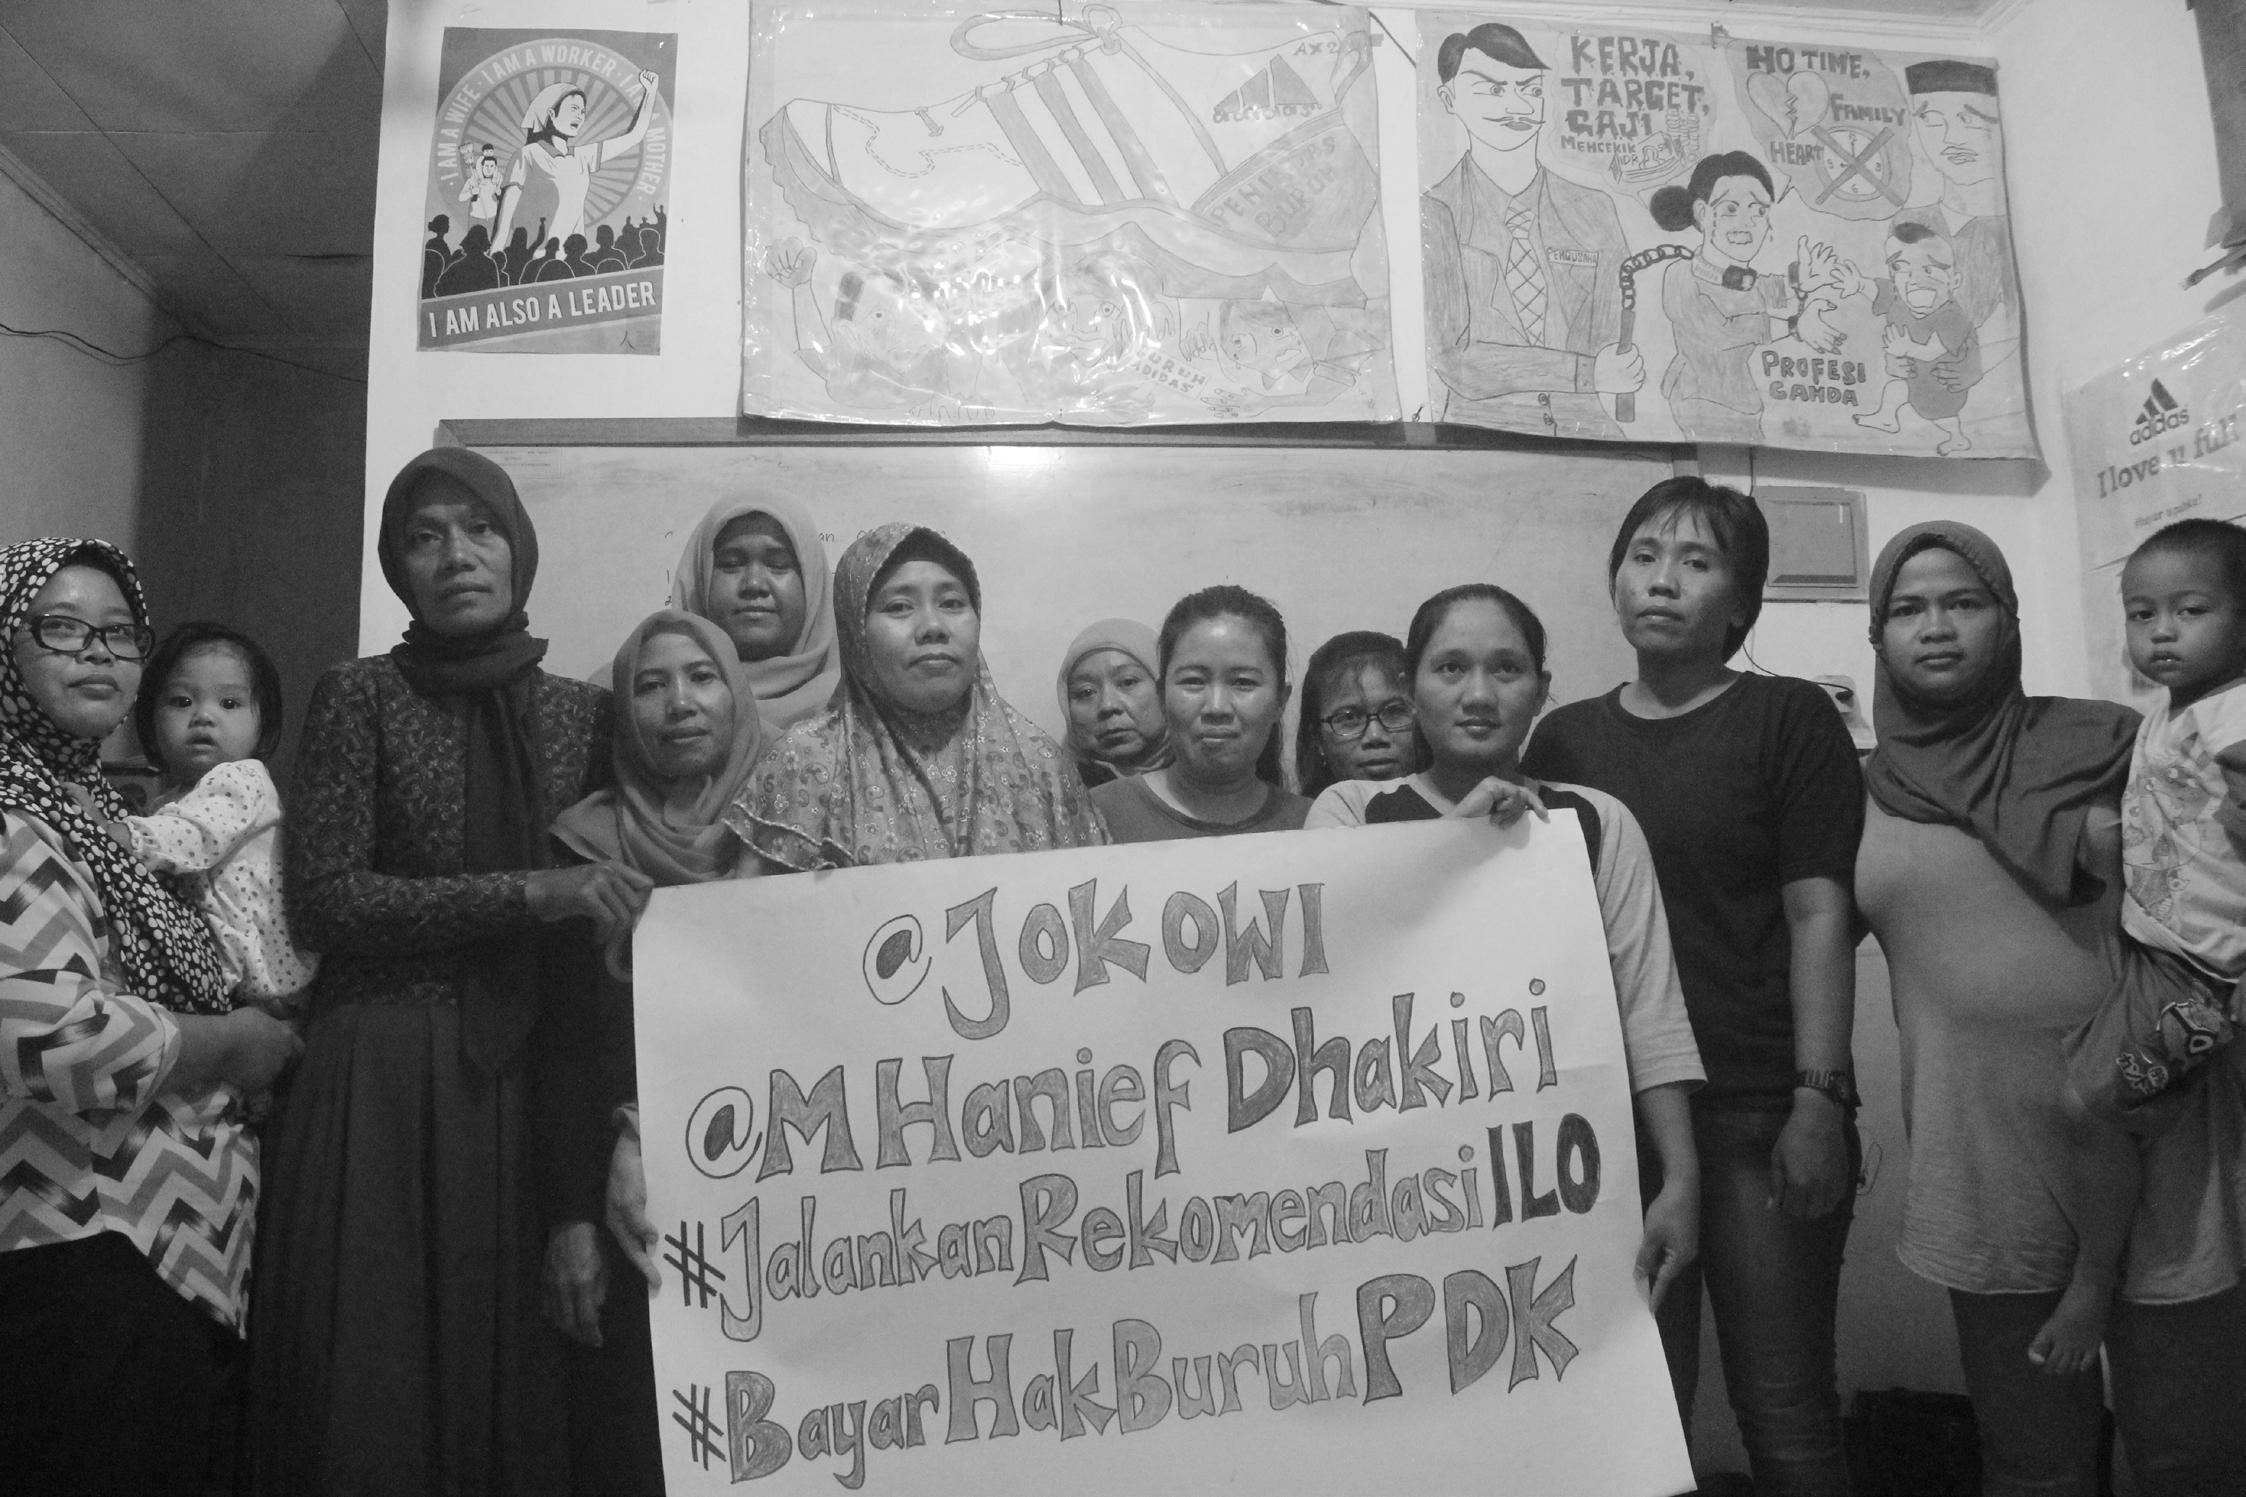 I AM A WIFE · I AM A WORKER · I AM A MOTHER ·
I AM ALSO A LEADER
PENGHISAP
BURUH
BURUH
ADIDAS
KERJA,
TARGET,
GAJI
MENCEKIK
IDR
NO TIME,
FAMILY
HEART
PENGUSAHA
PROFESI
GANDA
adidas
I love u full
@JOKOWI
@M Hanief Dhakiri
#JalankanRekomendasiILO
#BayarHakBuruhPDK